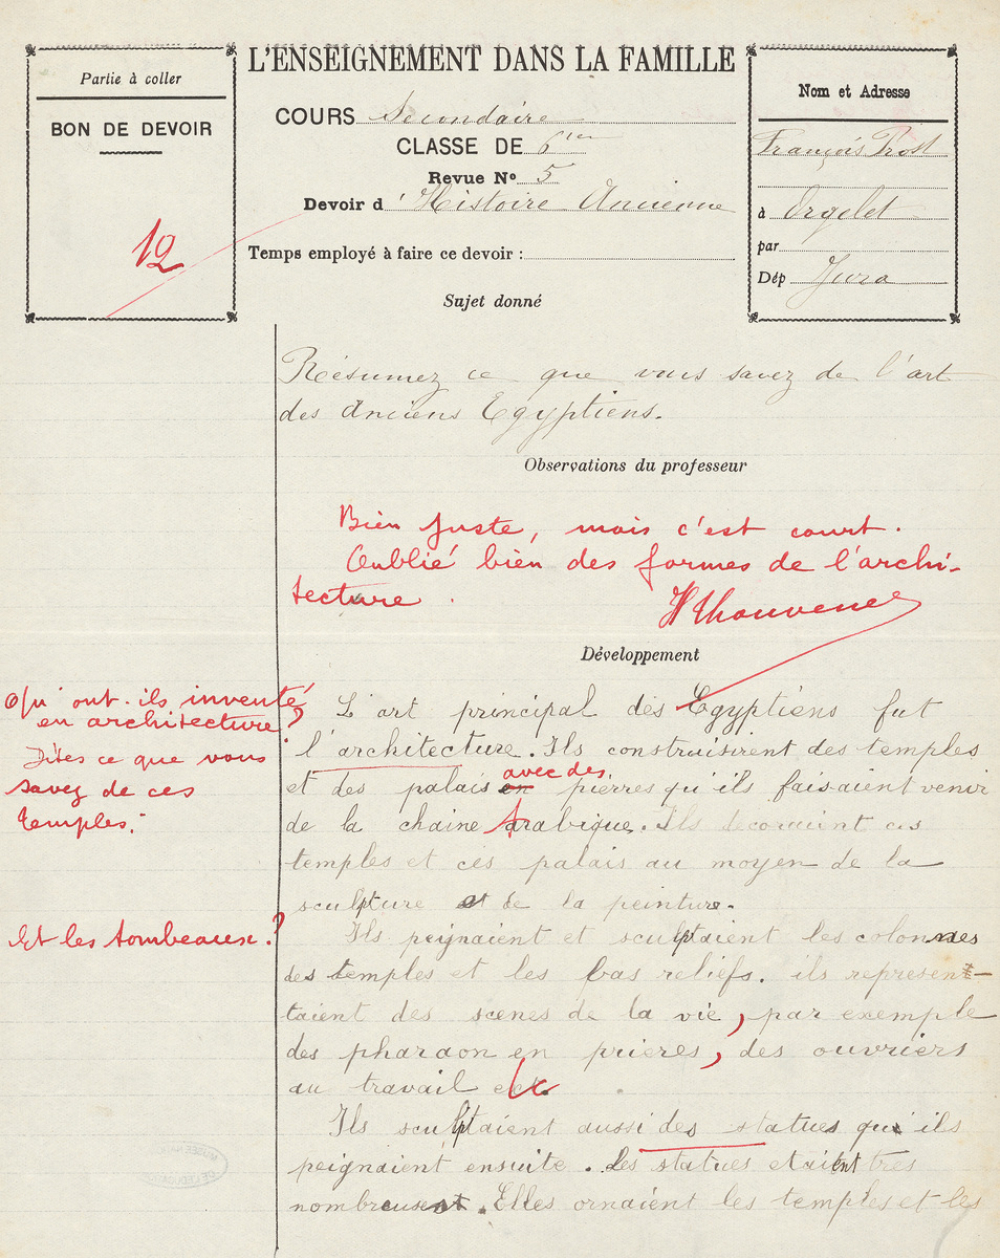 Partie à coller
BON DE DEVOIR
12
L'ENSEIGNEMENT DANS LA FAMILLE
COURS Secondaire
CLASSE DE 6ième
Revue No 5
Devoir d'Histoire Ancienne
Temps employé à faire ce devoir :
Nom et Adresse
François Prost
à Orgelet
par
Dép Jura
Sujet donné
Résumez ce que vous savez de l'art
des Anciens Egyptiens.
Observations du professeur
Bien juste, mais c'est court.
Oublié bien des formes de l'archi-
tecture.
Développement
Qu'ont-ils inventé
en architecture ?
Dites ce que vous
savez de ces
temples.
Et les tombeaux ?
L'art principal des Egyptiens fut
l'architecture. Ils construisirent des temples
et des palais en avec des pierres qu'ils faisaient venir
de la chaine Arabique. Ils decoraient ces
temples et ces palais au moyen de la
sculpture et de la peinture.
Ils peignaient et sculptaient les colonnes
des temples et les bas reliefs. ils represen-
taient des scenes de la vie, par exemple
des pharaon en prieres, des ouvriers
au travail ect.
Ils sculptaient aussi des statues qu'ils
peignaient ensuite. Les statues etaient tres
nombreuses. Elles ornaient les temples et les